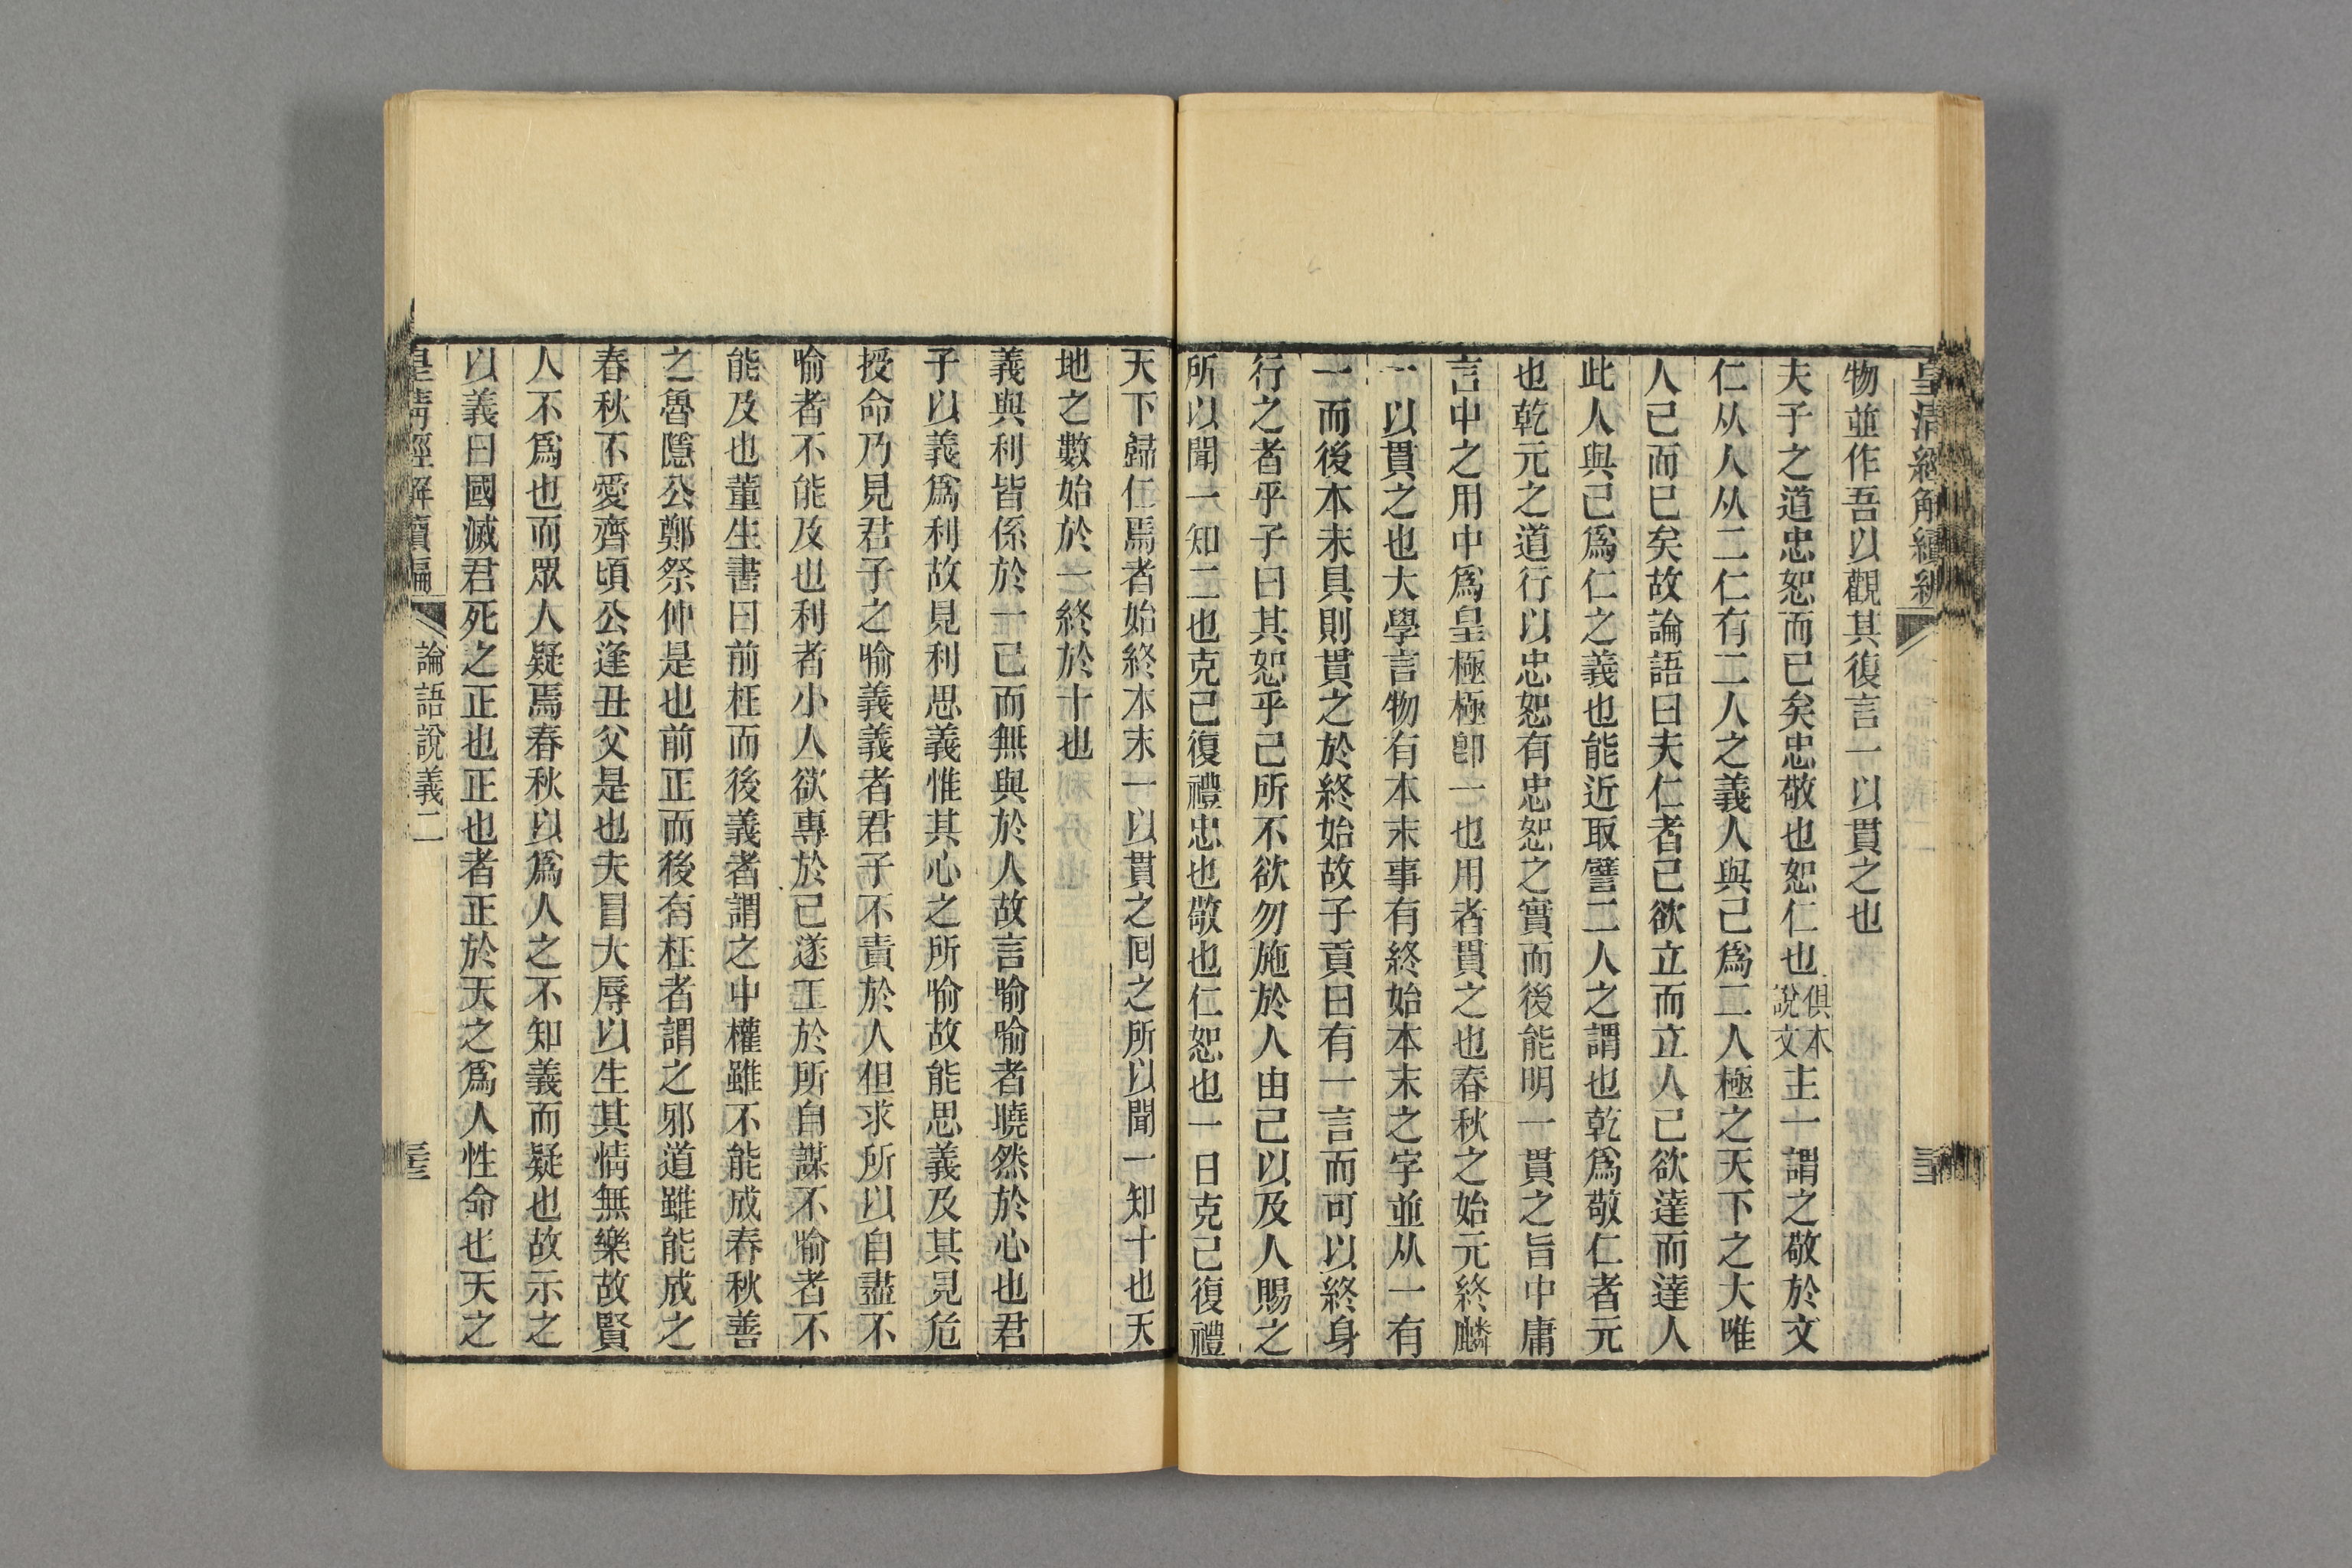 皇清經解續編
物並作吾以觀其復言一以貫之也
夫子之道忠恕而已矣忠敬也恕仁也俱本說文主一謂之敬於文
仁从人从二仁有二人之義人與己爲二人極之天下之大唯
人己而已矣故論語曰夫仁者己欲立而立人己欲達而達人
此人與己爲仁之義也能近取譬二人之謂也乾爲敬仁者元
也乾元之道行以忠恕有忠恕之實而後能明一貫之旨中庸
言中之用中爲皇極極卽一也用者貫之也春秋之始元終麟
一以貫之也大學言物有本末事有終始本末之字並从一有
一而後本末具則貫之於終始故子貢曰有一言而可以終身
行之者乎子曰其恕乎己所不欲勿施於人由己以及人賜之
所以聞一知二也克己復禮忠也敬也仁恕也一日克己復禮
天下歸仁焉者始終本末一以貫之回之所以聞一知十也天
地之數始於一終於十也
義與利皆係於一己而無與於人故言喻喻者曉然於心也君
子以義爲利故見利思義惟其心之所喻故能思義及其見危
授命乃見君子之喻義義者君子不責於人但求所以自盡不
喻者不能及也利者小人欲專於己遂工於所自謀不喻者不
能及也董生書曰前枉而後義者謂之中權雖不能成春秋善
之魯隱公鄭祭仲是也前正而後有枉者謂之邪道雖能成之
春秋不愛齊頃公逢丑父是也夫冒大辱以生其情無樂故賢
人不爲也而眾人疑焉春秋以爲人之不知義而疑也故示之
以義曰國滅君死之正也正也者正於天之爲人性命也天之
皇清經解續編 論語說義二